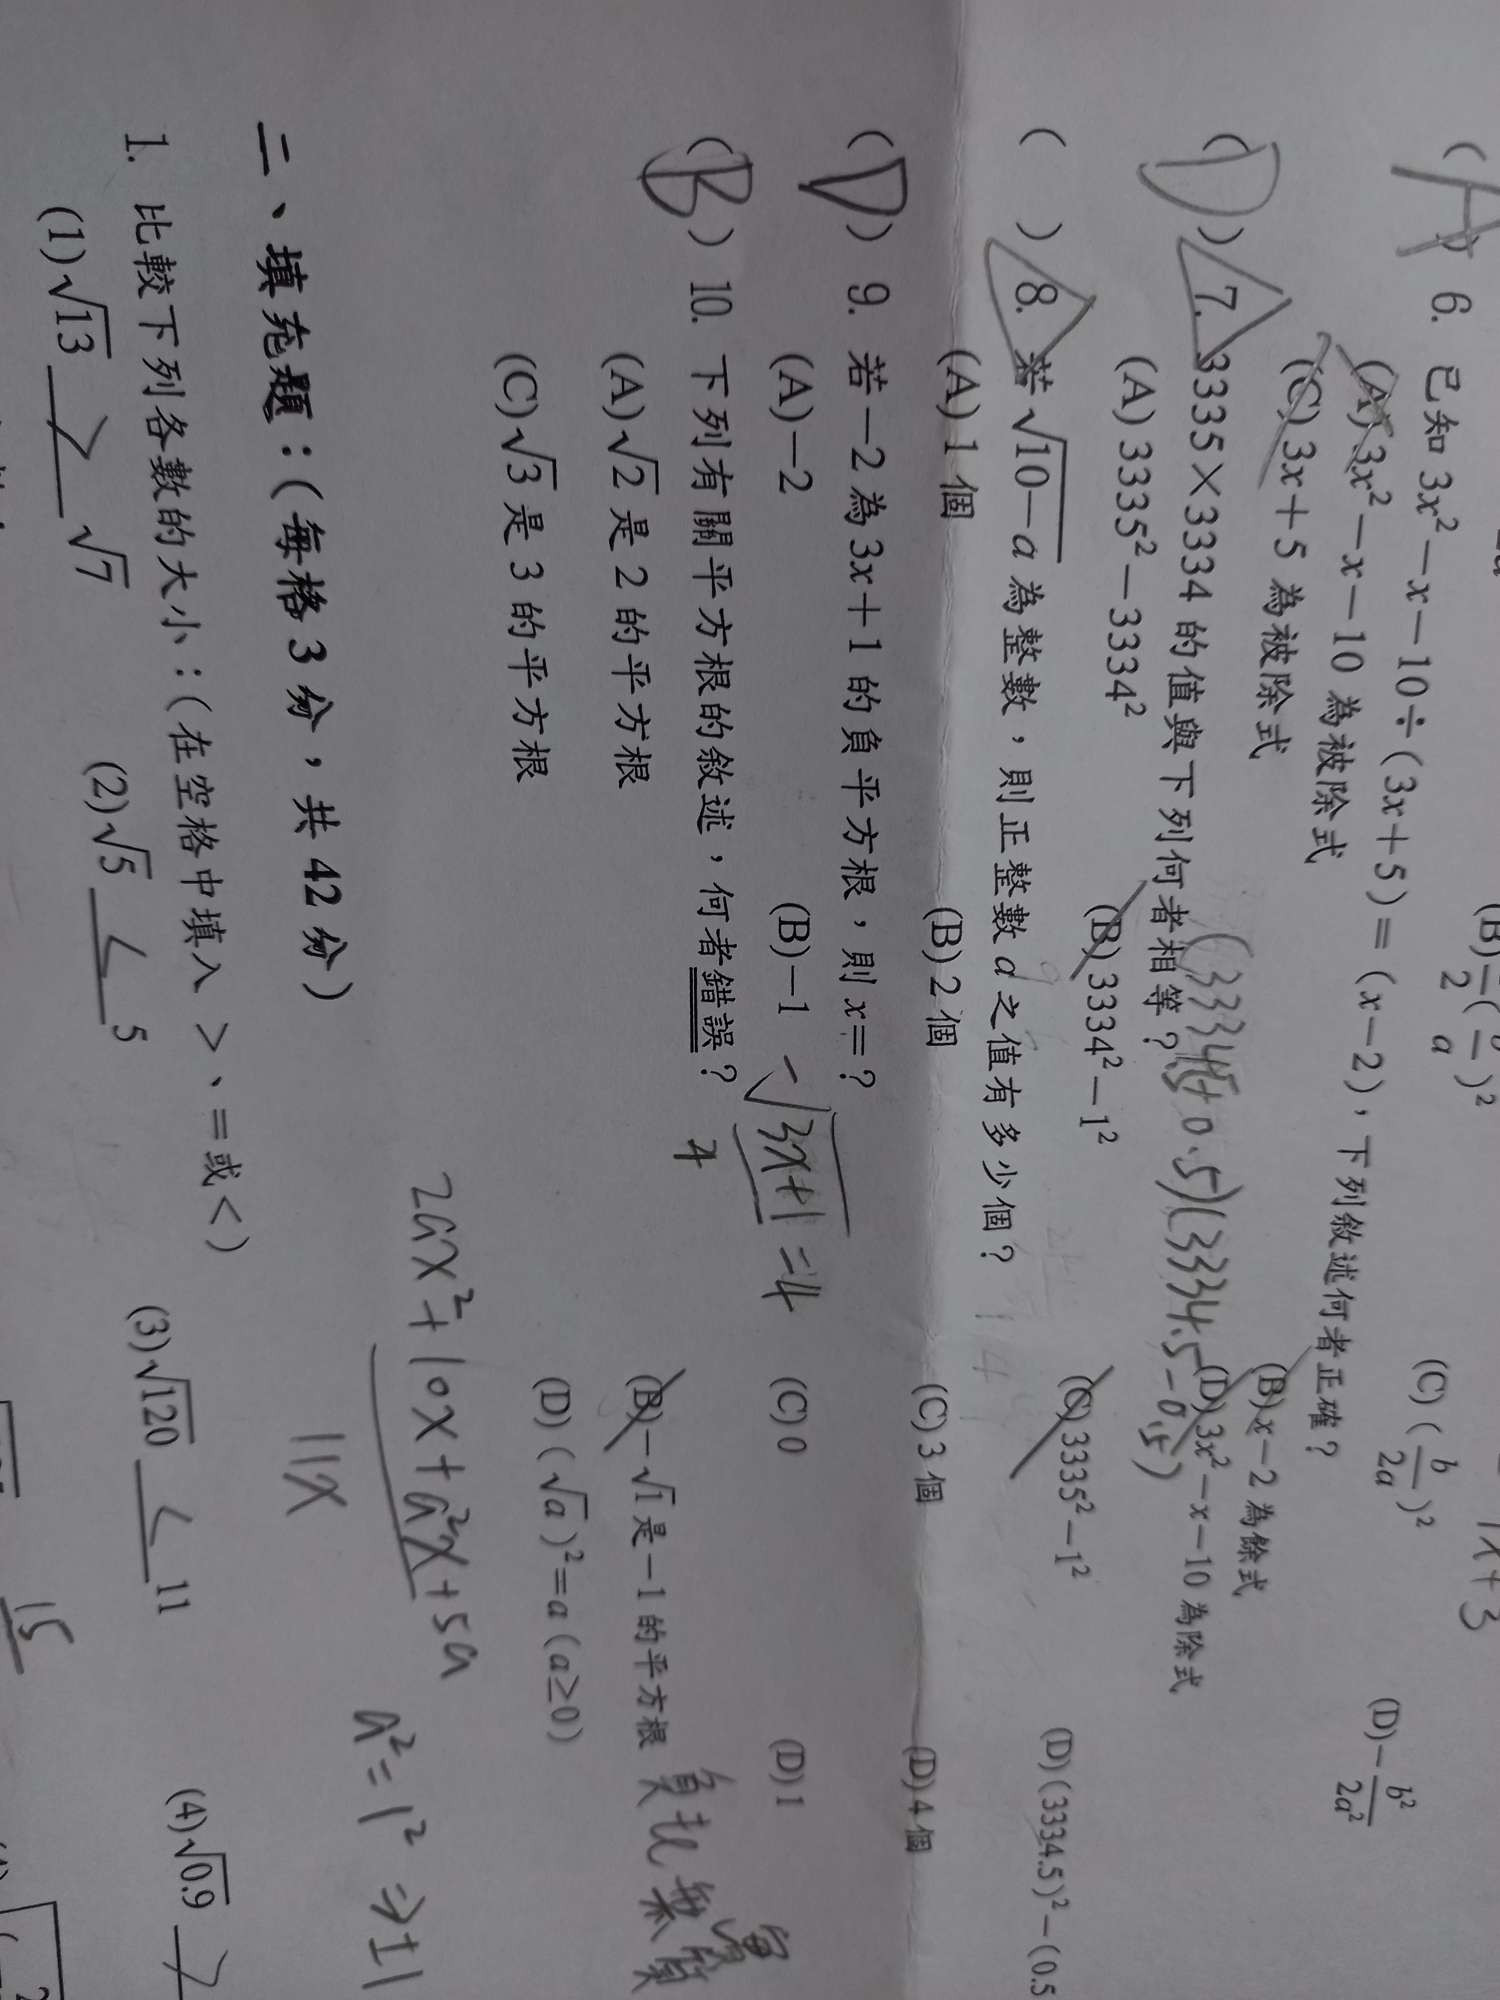 (B) —( — )²
2 a
(C) ( b/2a )²
(D) − b²/2a²
(A) 6. 已知 3x²−x−10÷(3x+5)=(x−2)，下列敘述何者正確？
(A) 3x²−x−10 為被除式
(B) x−2 為餘式
(C) 3x+5 為被除式
(D) 3x²−x−10 為除式
(D) 7. 3335×3334 的值與下列何者相等？
(3334.5+0.5)(3334.5−0.5)
(A) 3335²−3334²
(B) 3334²−1²
(C) 3335²−1²
(D) (3334.5)²−(0.5
( ) 8. 若 √10−a 為整數，則正整數 a 之值有多少個？
(A) 1 個
(B) 2 個
(C) 3 個
(D) 4 個
(D) 9. 若 −2 為 3x+1 的負平方根，則 x=？
(A) −2
(B) −1
(C) 0
(D) 1
−√3x+1 = 4
4
(B) 10. 下列有關平方根的敘述，何者錯誤？
(A) √2 是 2 的平方根
(B) −√1 是 −1 的平方根
(C) √3 是 3 的平方根
(D) (√a)²=a (a≥0)
2ax²+10x+a²x+5a
11x
a²=1² ⇒±1
二、填充題：(每格 3 分，共 42 分)
1. 比較下列各數的大小：(在空格中填入 >、=或<)
(1) √13 > √7
(2) √5 < 5
(3) √120 < 11
(4) √0.9 >
15